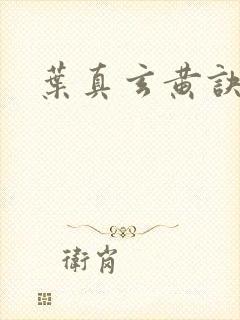 葉真玄黃訣
衛肖